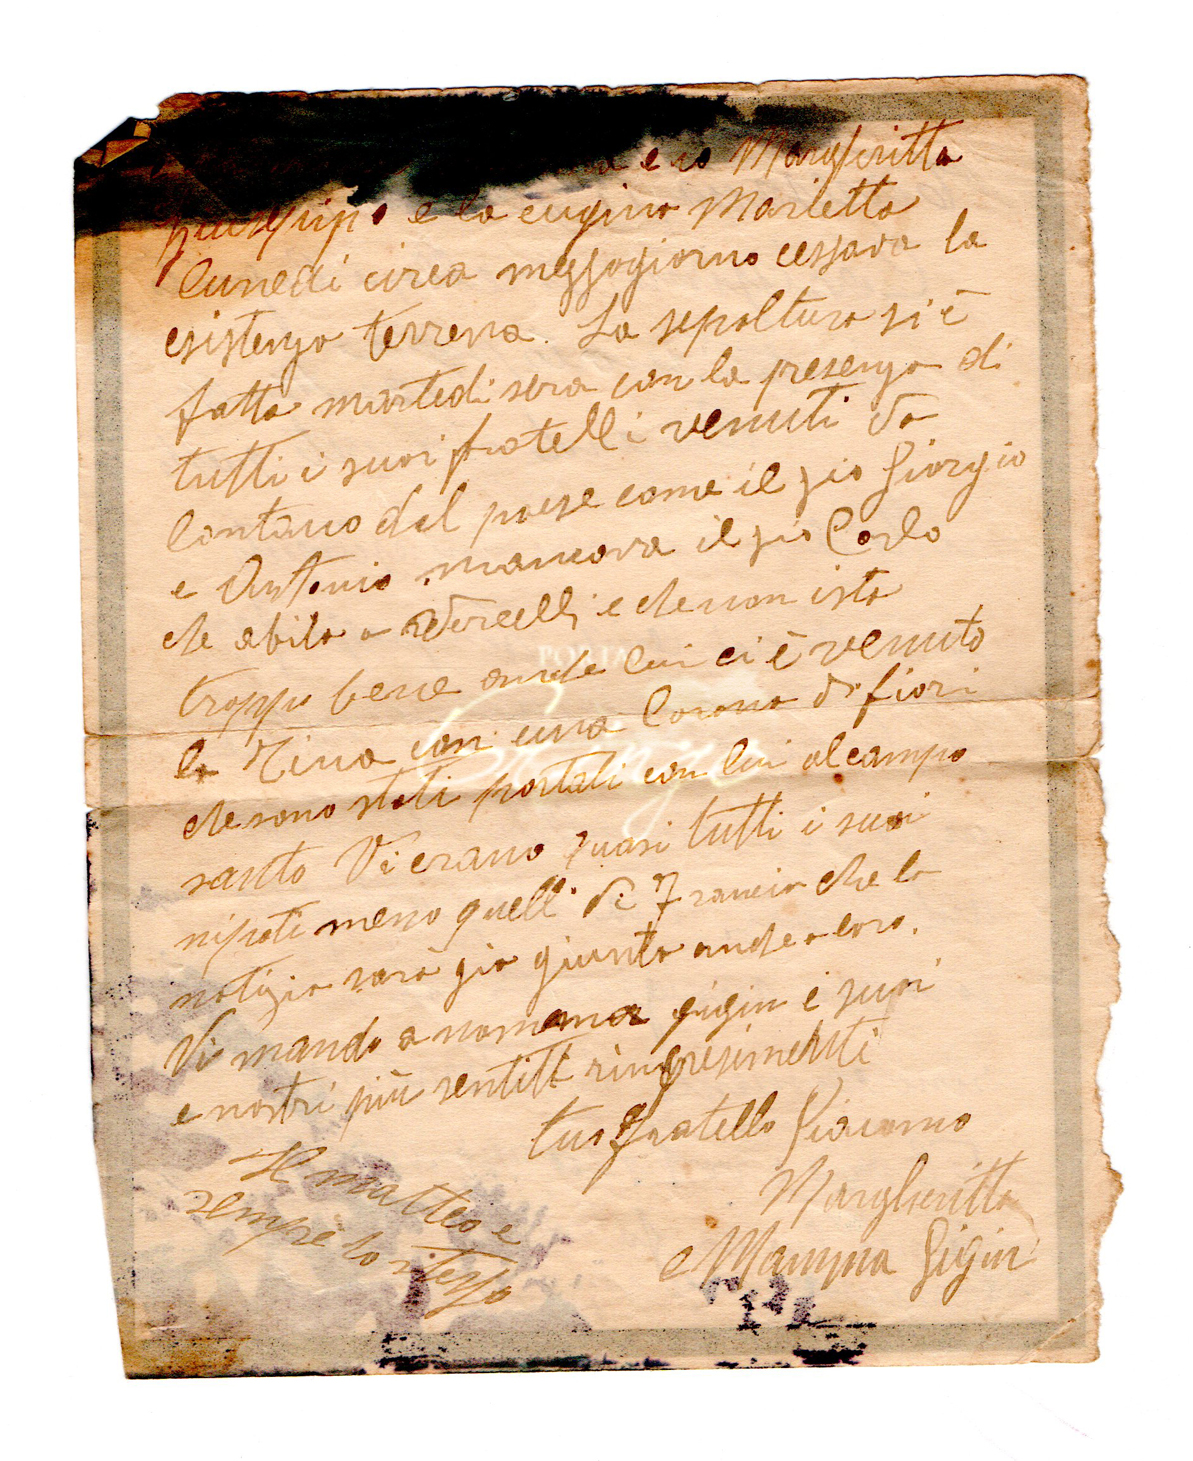 Margheritta
e la cugina Marietta
lunedi circa mezzogiorno cessava la
esistenza terrena. La sepoltura si è
fatta martedi sera con la presenza di
tutti i suoi fratelli venuti da
lontano dal paese come il zio Giorgio
e Antonio mancava il zio Carlo
che abita a Vercelli e che non ista
troppo bene anche lui ci è venuto
la Tina con una Corona di fiori
che sono stati portati con lui al campo
santo Vi erano quasi tutti i suoi
nipoti meno quelli di Francia che la
notizia sarà gia giunta anche a loro.
Vi mando a nome Gigin i suoi
e nostri più sentiti
tuo fratello Giacomo
Margheritta
e Mamma Gigin
Il matteo e
sempre lo stesso
PORTA